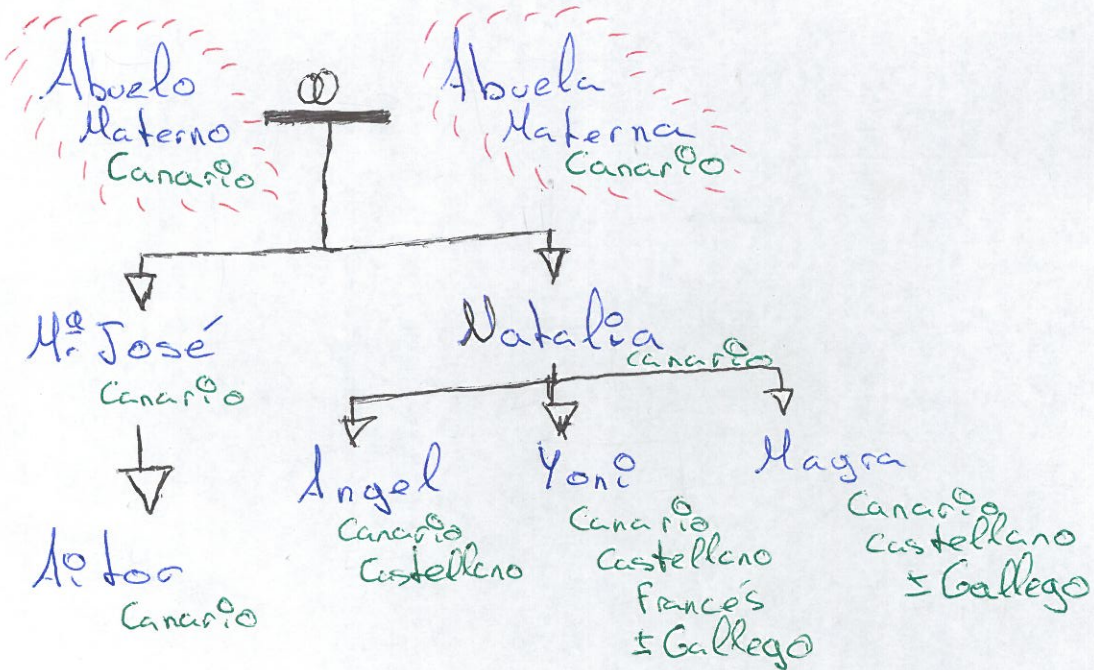 Abuelo
Materno
Canario
Abuela
Materna
Canario
Mª José
Canario
Natalia
Canario
Aitor
Canario
Angel
Canario
Castellano
Yoni
Canario
Castellano
Francés
± Gallego
Magra
Canario
Castellano
± Gallego